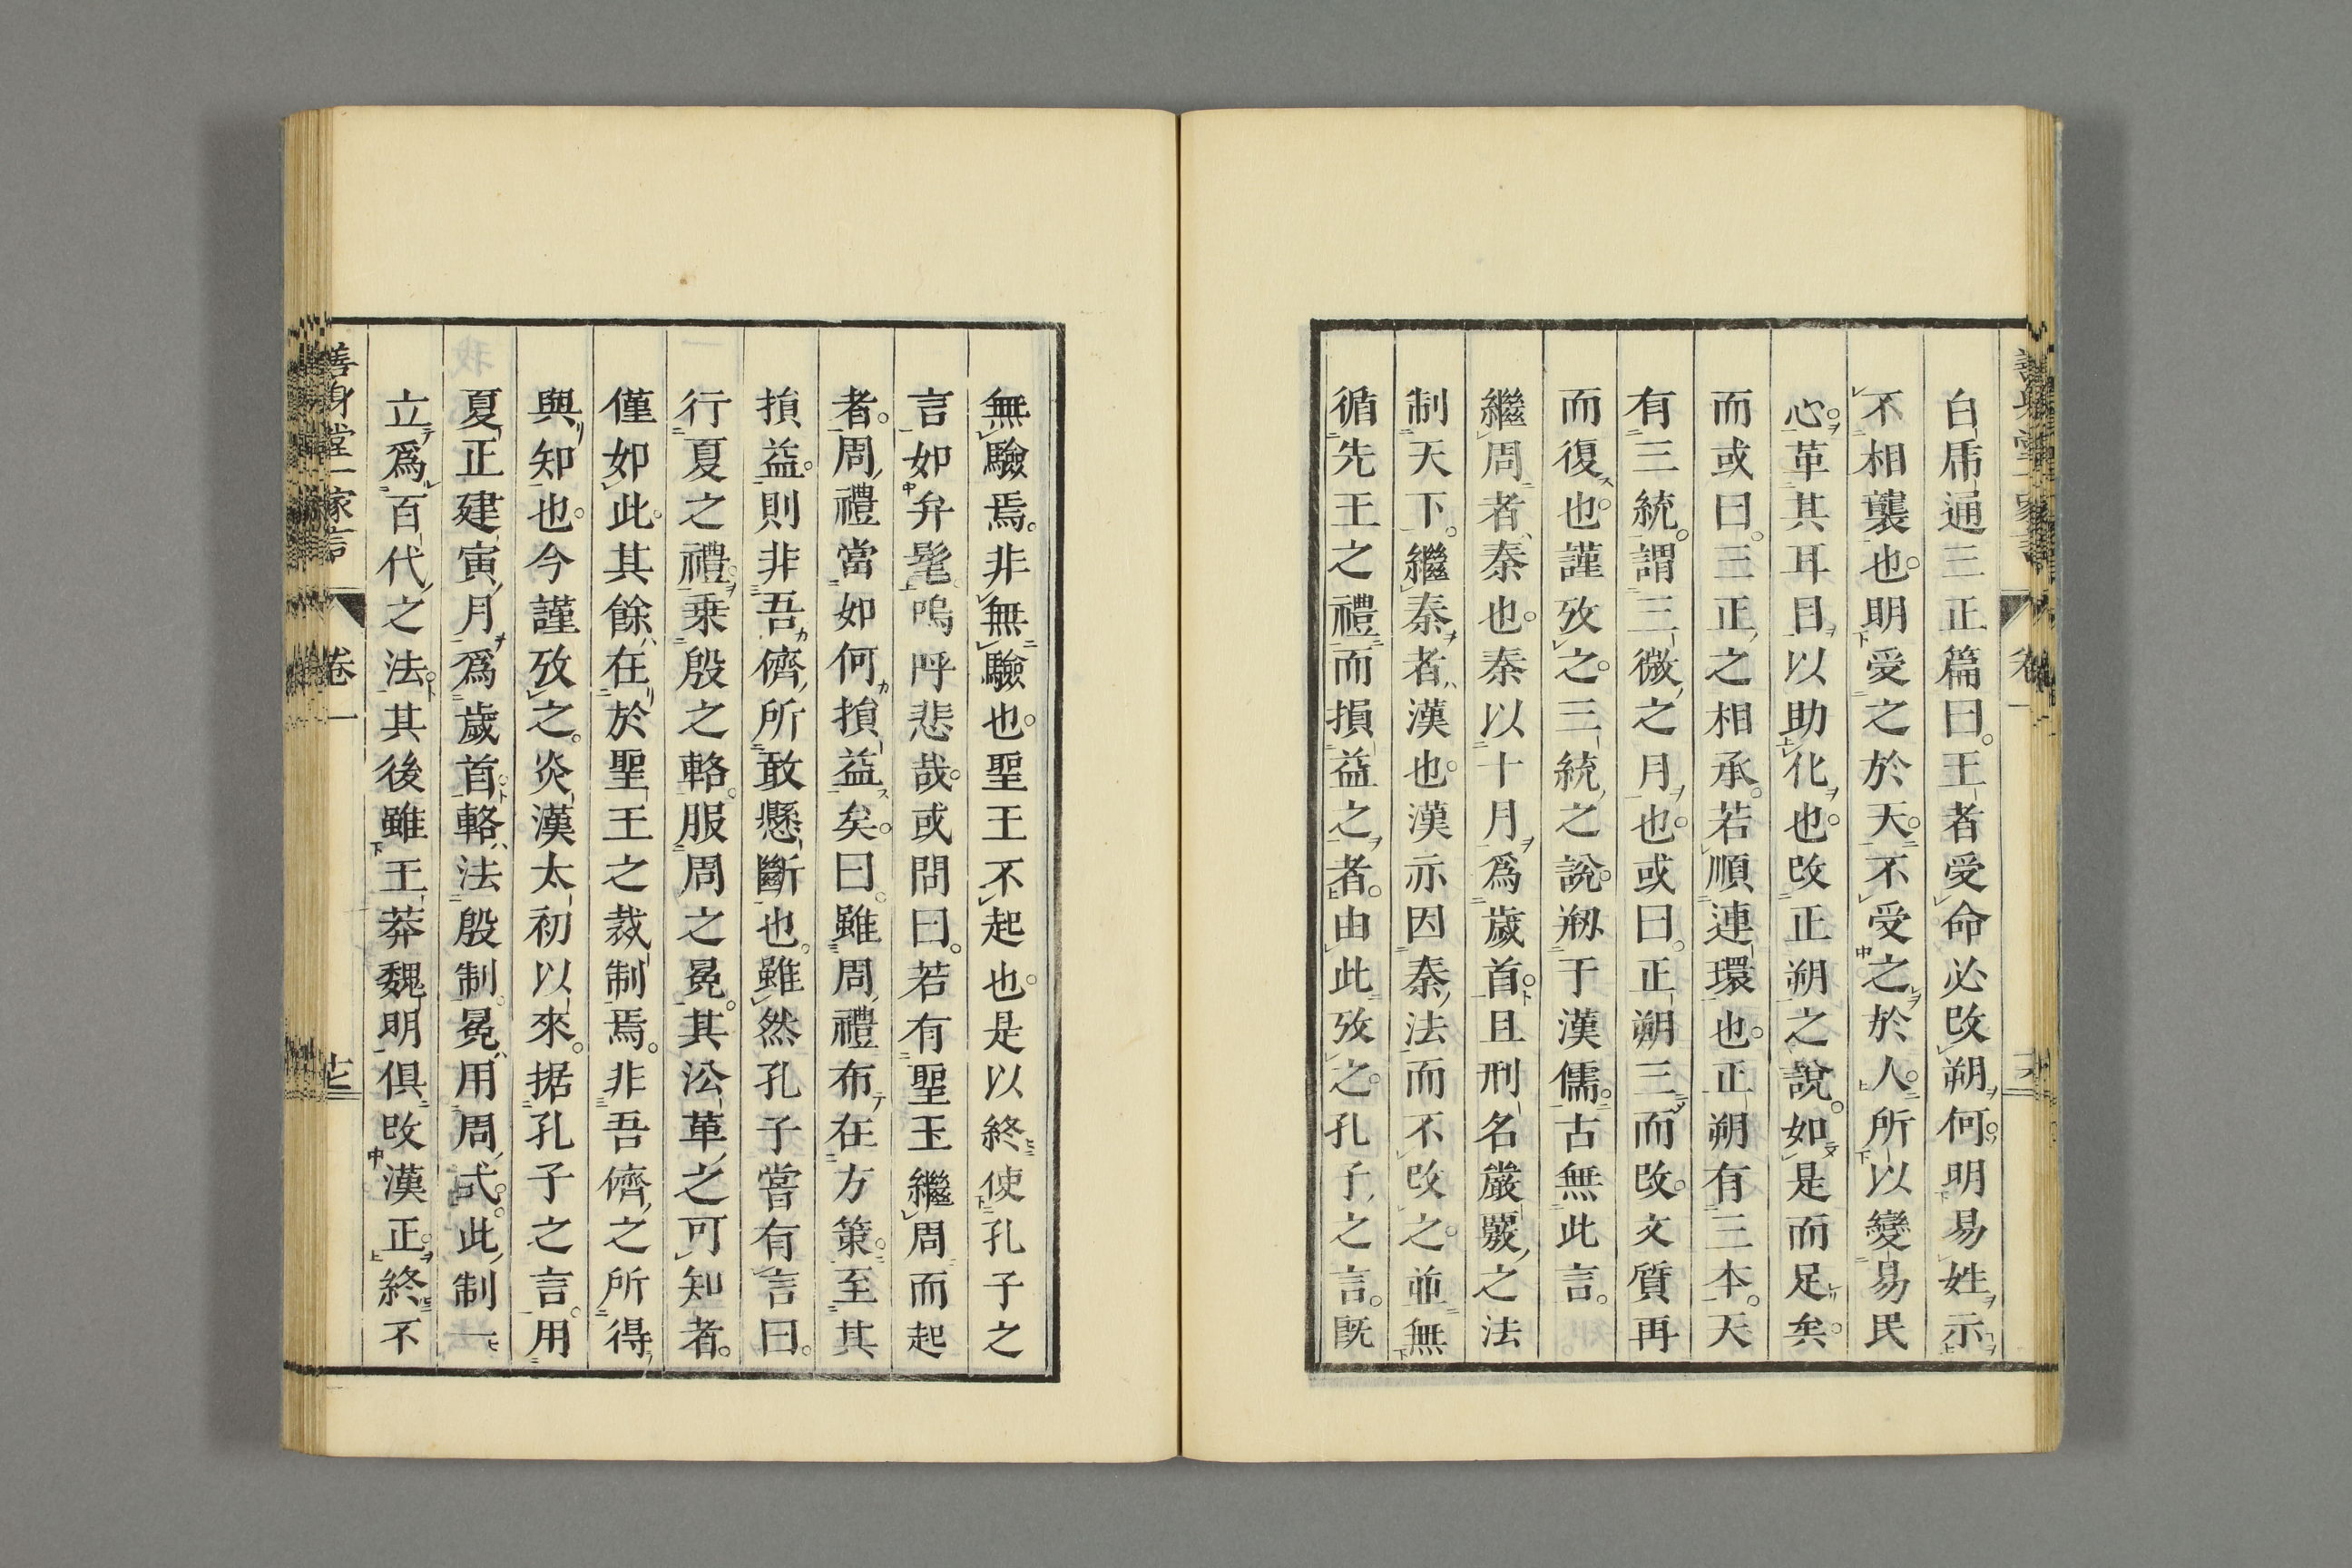 白乕通三正篇曰。王者受命必改朔何。明易姓示
不相襲也。明受之於天。不受之於人。所以變易民
心。革其耳目以助化也。改正朔之說。如是而足矣。
而或曰。三正之相承。若順連環也。正朔有三本。天
有三統。謂三微之月也。或曰。正朔三而改。文質再
而復也。謹攷之。三統之說。剏于漢儒。古無此言。
繼周者秦也。秦以十月爲歲首。且刑名嚴覈之法
制天下。繼秦者漢也。漢亦因秦法而不改之。並無
循先王之禮而損益之者。由此攷之。孔子之言。既
無驗焉。非無驗也。聖王不起也。是以終使孔子之
言如弁髦。嗚呼悲哉。或問曰。若有聖王繼周而起
者。周禮當如何損益矣。曰。雖周禮布在方策。至其
損益。則非吾儕所敢懸斷也。雖然孔子嘗有言曰。
行夏之禮。乗殷之輅。服周之冕。其沿革之可知者。
僅如此。其餘在於聖王之裁制焉。非吾儕之所得
與知也。今謹攷之。炎漢太初以來。据孔子之言。用
夏正建寅月爲歲首。輅法殷制。冕用周式。此制一
立爲百代之法。其後雖王莽魏明俱改漢正。終不
善身堂一家言 卷一 十七